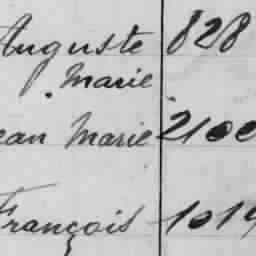 Auguste 828
Marie
ean Marie 2100
François 1019